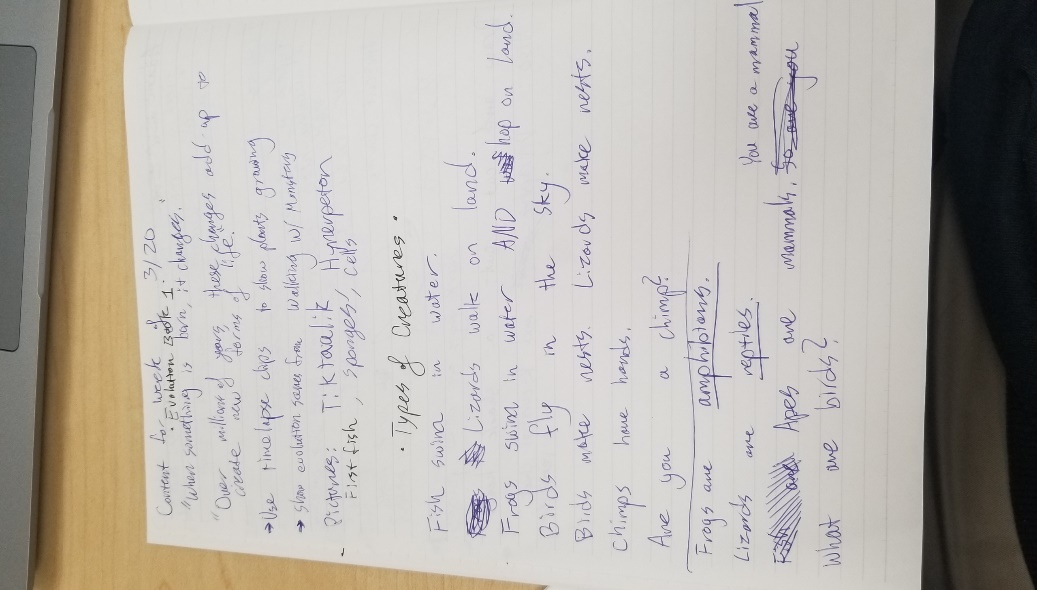 Content for week of 3/20
• Evolution Book 1:
"When something is born, it changes."
"Over millions of years, these changes add up to
create new forms of life."
→ Use timelapse clips to show plants growing
→ Show evolution scenes from Walking w/ Monsters
- Pictures: Tiktaalik, Hynerpeton
First fish, sponges, cells
• Types of Creatures •
Fish swim in water.
Lizards walk on land.
Frogs swim in water AND hop on land.
Birds fly in the sky.
Birds make nests. Lizards make nests.
Chimps have hands.
Are you a chimp?
Frogs are amphibians.
Lizards are reptiles.
You are a mammal
Apes are mammals. So are you
What are birds?